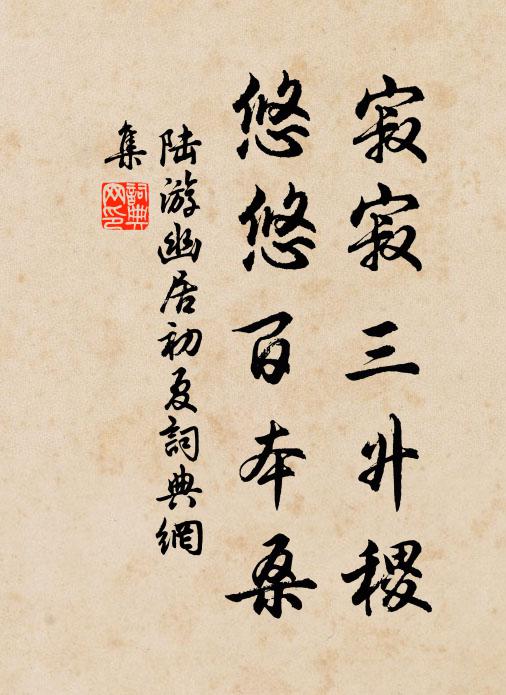 寂寂三升稷
悠悠百本桑
陆游幽居初夏詞典網
集
詞典网印